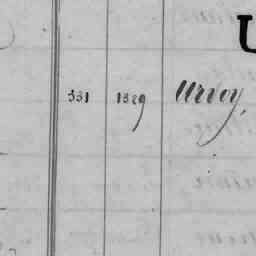 U
331 1829 Urvoy,